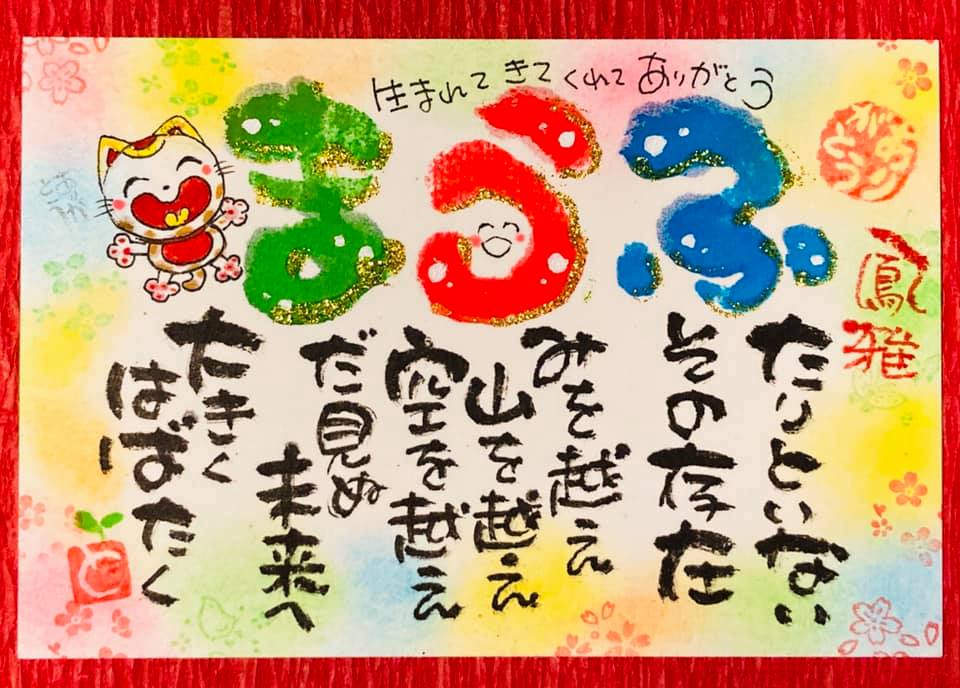 生まれてきてくれてありがとう
ふたりといない
その存在
うみを越え
山を越え
空を越え
まだ見ぬ
未来へ
大きく
はばたく
ありがとう
鳳雅